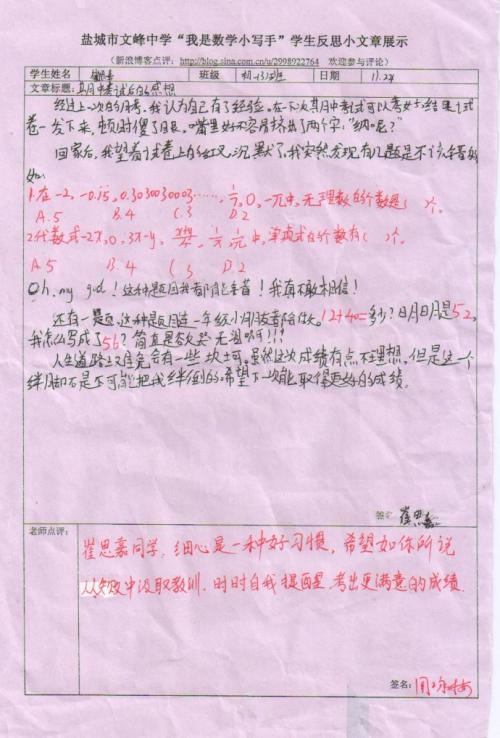 盐城市文峰中学“我是数学小写手”学生反思小文章展示
（新浪博客点评：http://blog.sina.com.cn/u/2998922764 欢迎参与评论）
学生姓名 崔思嘉 班级 初一(3)班 日期 11.24
文章标题： 期中考试后的感想
经过上一次的月考，我认为自己有了经验。在下次期中考试可以考好。结果试
卷一发下来，顿时傻了眼。嘴里好不容易挤出了两个字：“纳呢？”
回家后，我望着试卷上的红叉，沉默了。我突然发现有几题是不该错的
如：
1.在-2，-0.15，0.3030030003……，1/7，0，-π中，无理数的个数是（ ）个。
A.5 B.4 C.3 D.2
2.代数式-2x，0，3x-y，，中，单项式的个数有（ ）个。
A.5 B.4 C3 D.2
Oh，my god！这种题目我都！我真不敢相信！
还有一题，这种题目连一年级小朋友都会做。12+40=多少？明明是52，
我怎么写成了56？简直是！！？
人生道路上又总会有一些坎坷。虽然这次成绩有点不理想。但是这一个
绊脚石是不可能把我绊倒的。希望下一次能取得更好的成绩。
签名：崔思嘉
老师点评：
崔思嘉同学，细心是一种好习惯，希望如你所说
从失败中汲取教训，时时自我提醒，考出更满意的成绩．
签名：